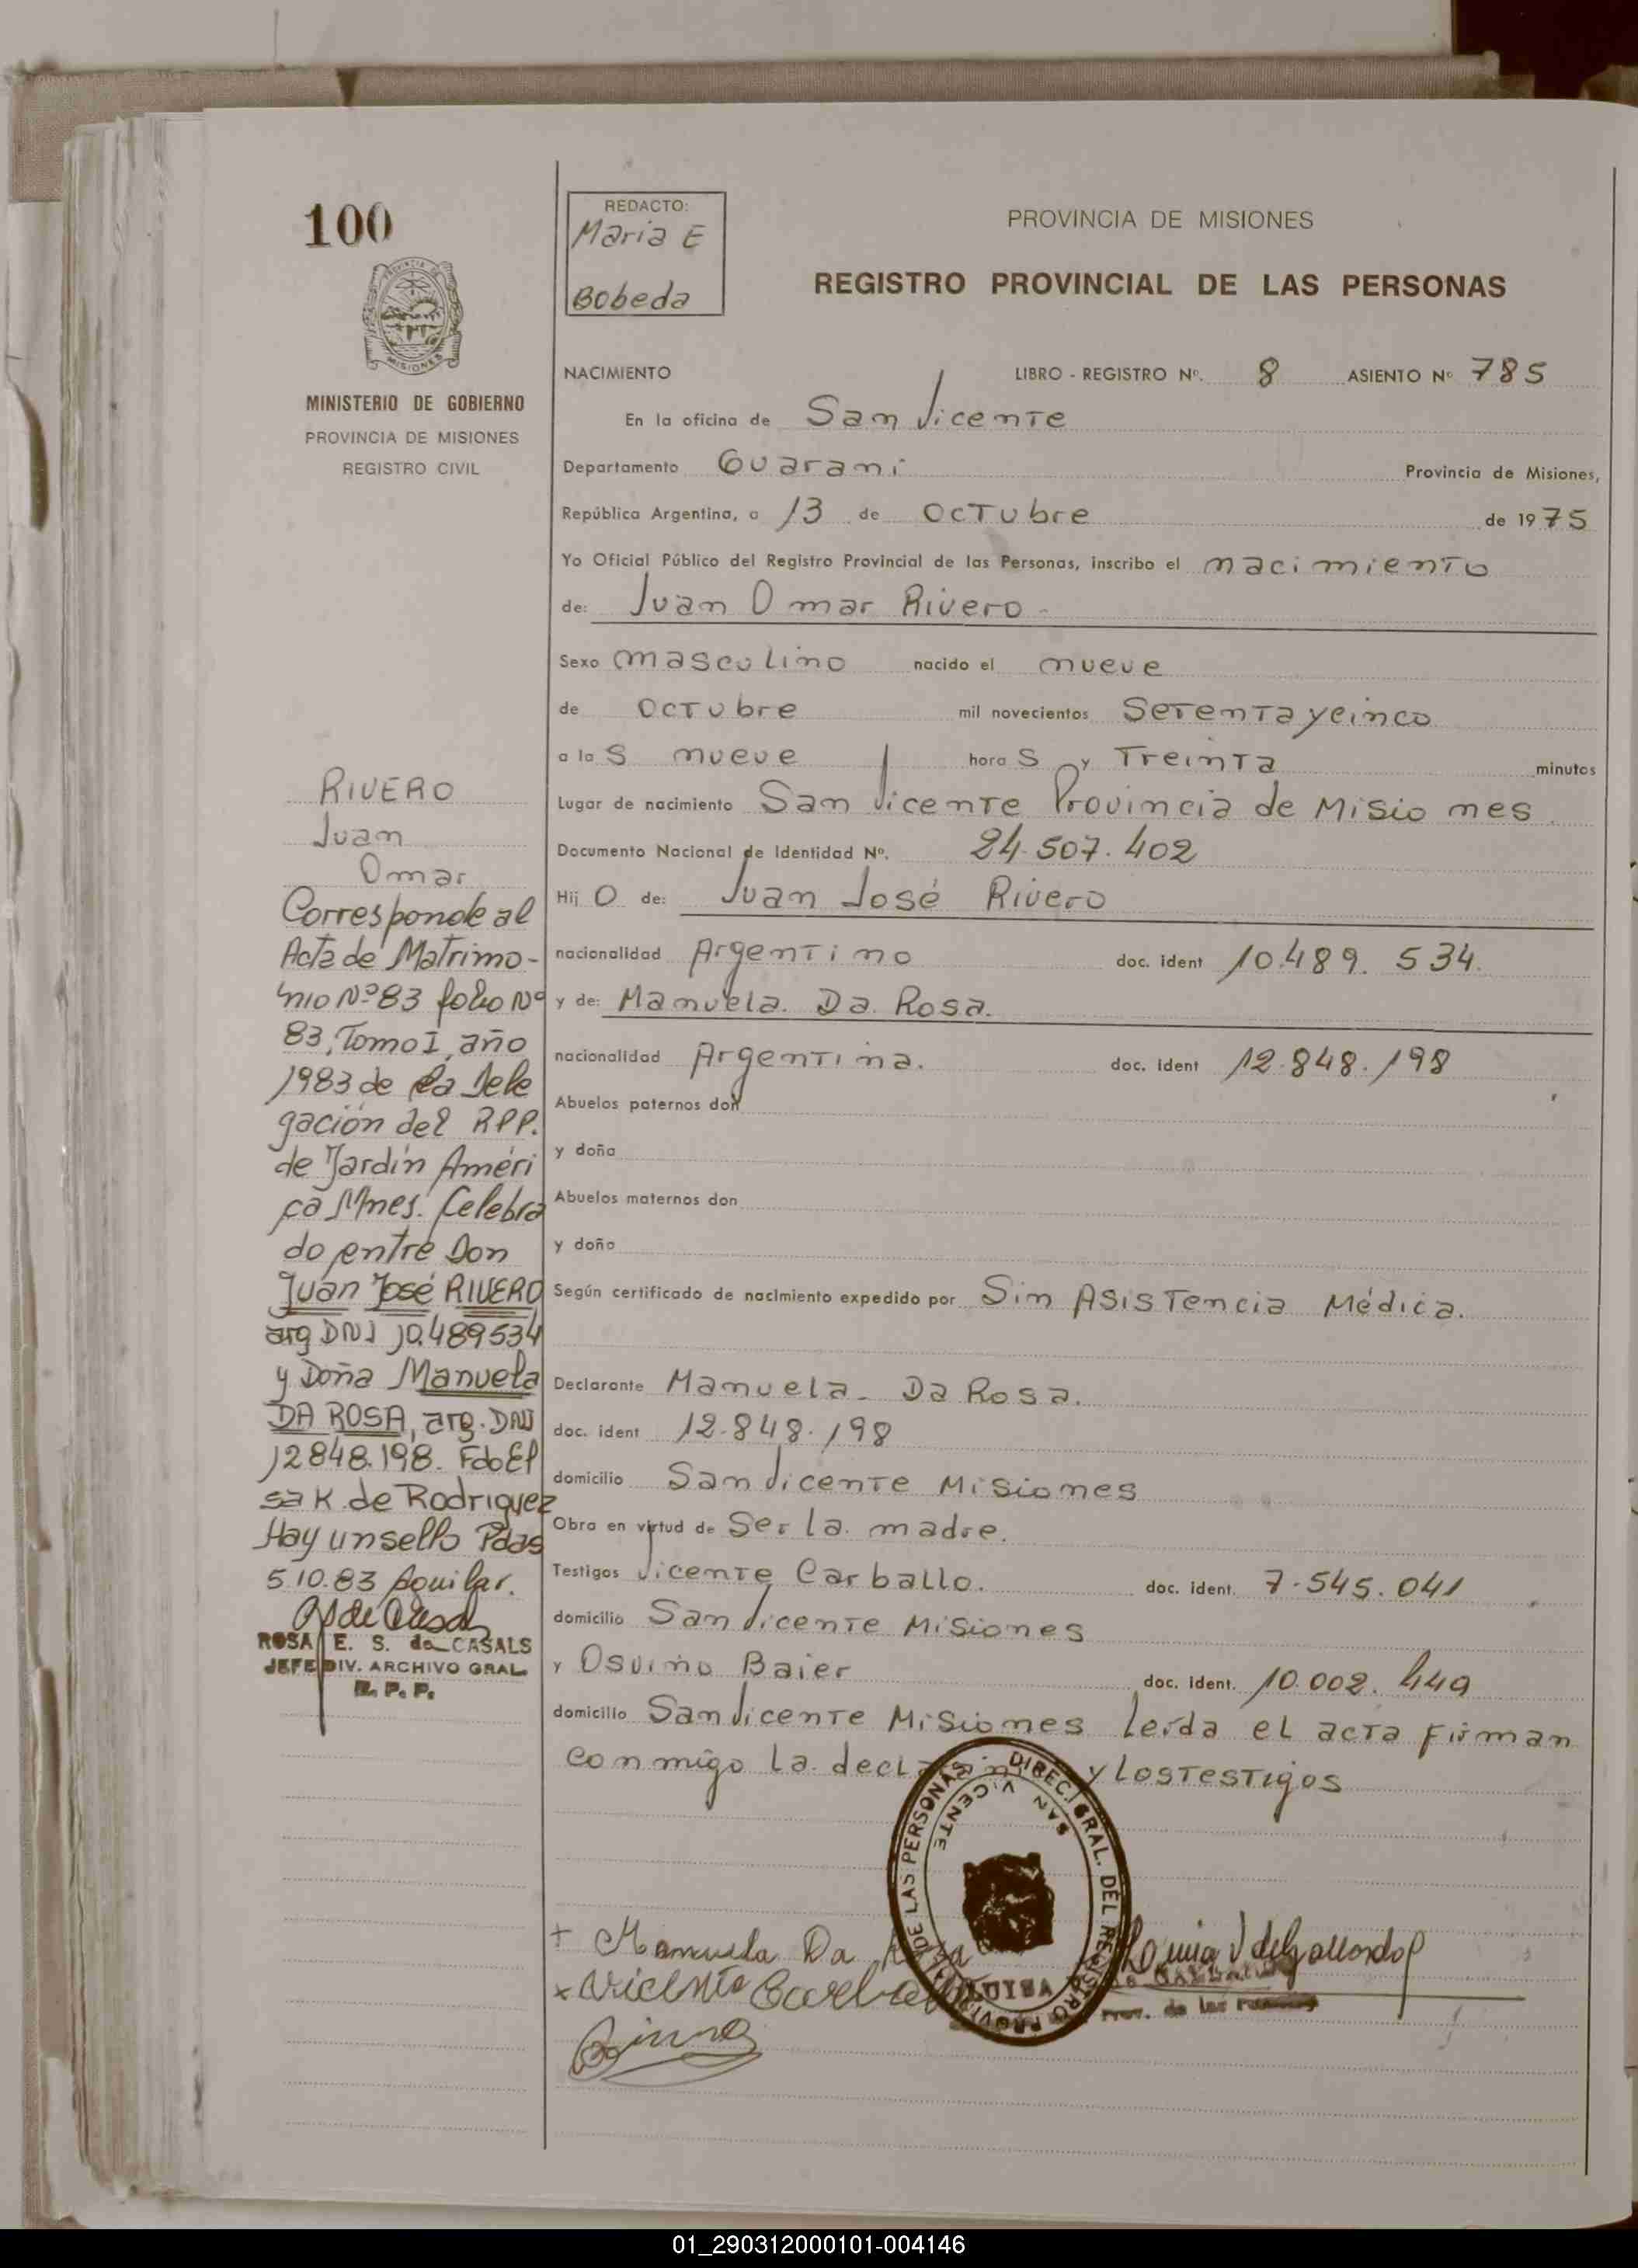 100
REDACTO:
Maria E
Bobeda
PROVINCIA DE MISIONES
REGISTRO PROVINCIAL DE LAS PERSONAS
MINISTERIO DE GOBIERNO
PROVINCIA DE MISIONES
REGISTRO CIVIL
NACIMIENTO LIBRO - REGISTRO Nº. 8 ASIENTO Nº 785
En la oficina de San Vicente
Departamento Guarani Provincia de Misiones,
República Argentina, a 13 de Octubre de 1975
Yo Oficial Público del Registro Provincial de las Personas, inscribo el nacimiento
de: Juan Omar Rivero -
Sexo masculino nacido el nueve
de Octubre mil novecientos Setenta y cinco
a las nueve horas y Treinta minutos
Lugar de nacimiento San Vicente Provincia de Misiones.
Documento Nacional de Identidad Nº. 24.507.402
Hijo de: Juan José Rivero
nacionalidad Argentino doc. ident 10.489.534.
y de: Manuela. Da Rosa.
nacionalidad Argentina. doc. ident 12.848.198
Abuelos paternos don
y doña
Abuelos maternos don
y doña
Según certificado de nacimiento expedido por Sin Asistencia Médica.
Declarante Manuela - Da Rosa.
doc. ident 12.848.198
domicilio San Vicente Misiones
Obra en virtud de Ser la madre.
Testigos Vicente Carballo. doc. ident. 7.545.041
domicilio San Vicente Misiones
y Osvino Baier doc. ident. 10.002.449
domicilio San Vicente Misiones leída el acta firman
conmigo la y los testigos
RIVERO
Juan
Omar
Corresponde al
Acta de Matrimo-
nio Nº 83 folio Nº
83, Tomo I, año
1983 de la Dele
gación del RPP.
de Jardín Améri
ca Mnes. Celebra
do entre Don
Juan José RIVERO
arg DNI 10.489534
y Doña Manuela
DA ROSA, arg. DNI
12848.198. Fdo El
sa K. de Rodriguez
Hay un sello Pdas
5.10.83 Aguilar.
ROSA E. S. de CASALS
JEFE DIV. ARCHIVO GRAL.
R. P. P.
DIREC. GRAL. DEL REGISTRO PROVINCIAL DE LAS PERSONAS
SAN VICENTE
+ Manuela Da Rosa
x Vicente Carballo
LUISA
Prov. de las
01_290312000101-004146